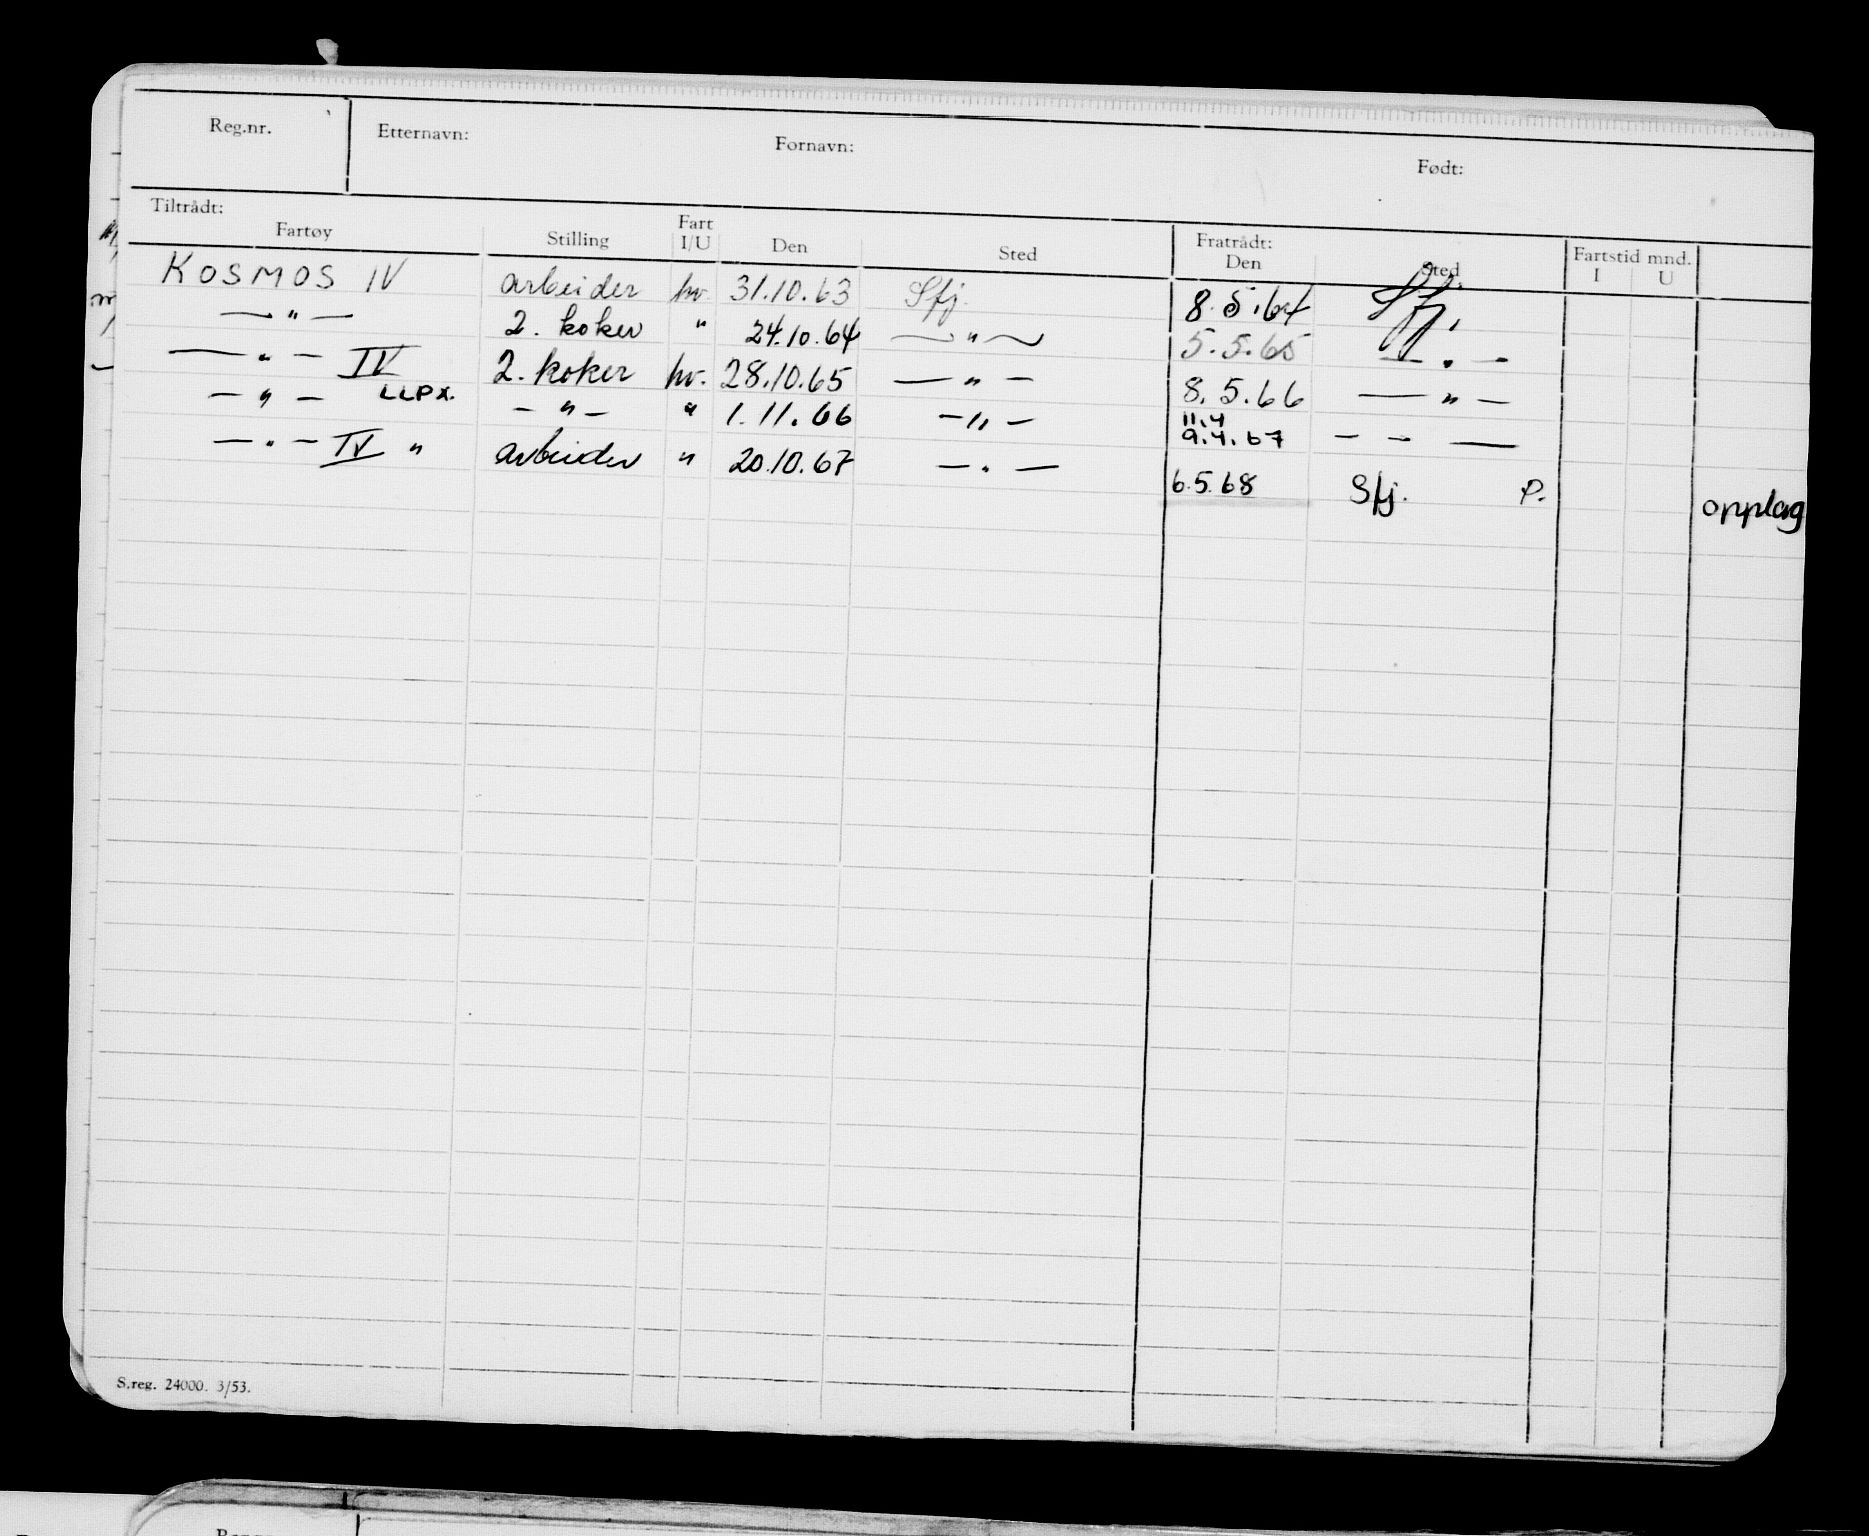 Reg.nr. Etternavn: Fornavn: Født:
Tiltrådt: Fratrådt:
Fartøy Stilling Fart I/U Den Sted Den Sted Fartstid mnd. I U
KOSMOS IV arbeider hv. 31.10.63 Sfj. 8.5.64 Sfj.
— " — 2. koker " 24.10.64 — " — 5.5.65 — " —
— " — IV 2. koker hv. 28.10.65 — " — 8.5.66 — " —
— " — LLPX. — " — " 1.11.66 — " — 11.4 9.4.67 — — —
— " — IV " arbeider " 20.10.67 — " — 6.5.68 Sfj. P. opplag
S.reg. 24000. 3/53.